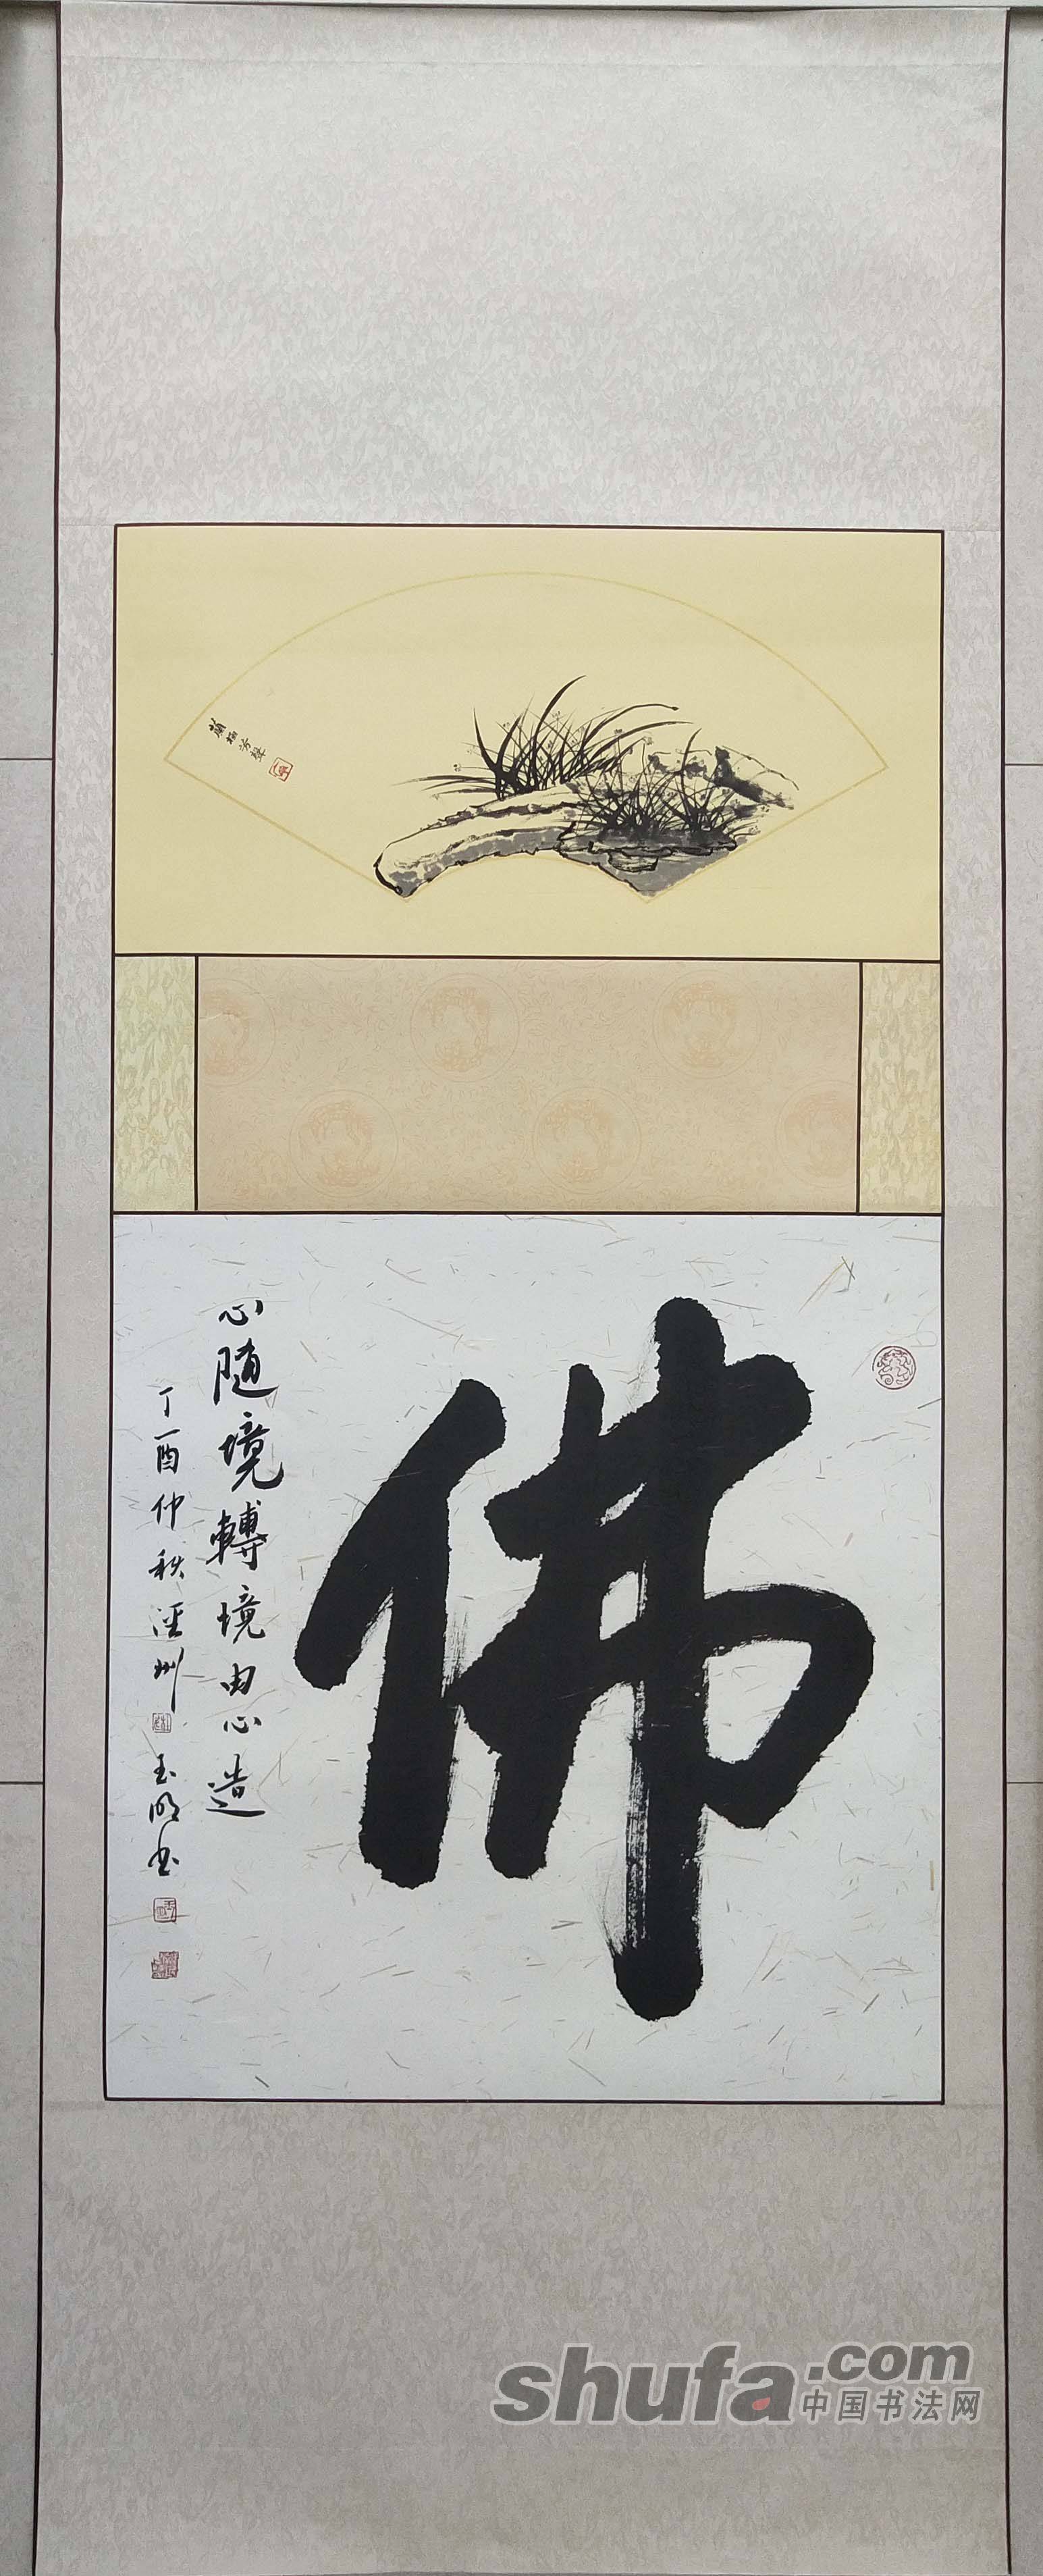 佛
心隨境轉境由心造
丁酉仲秋涇州玉明书
shufa.com
中国书法网